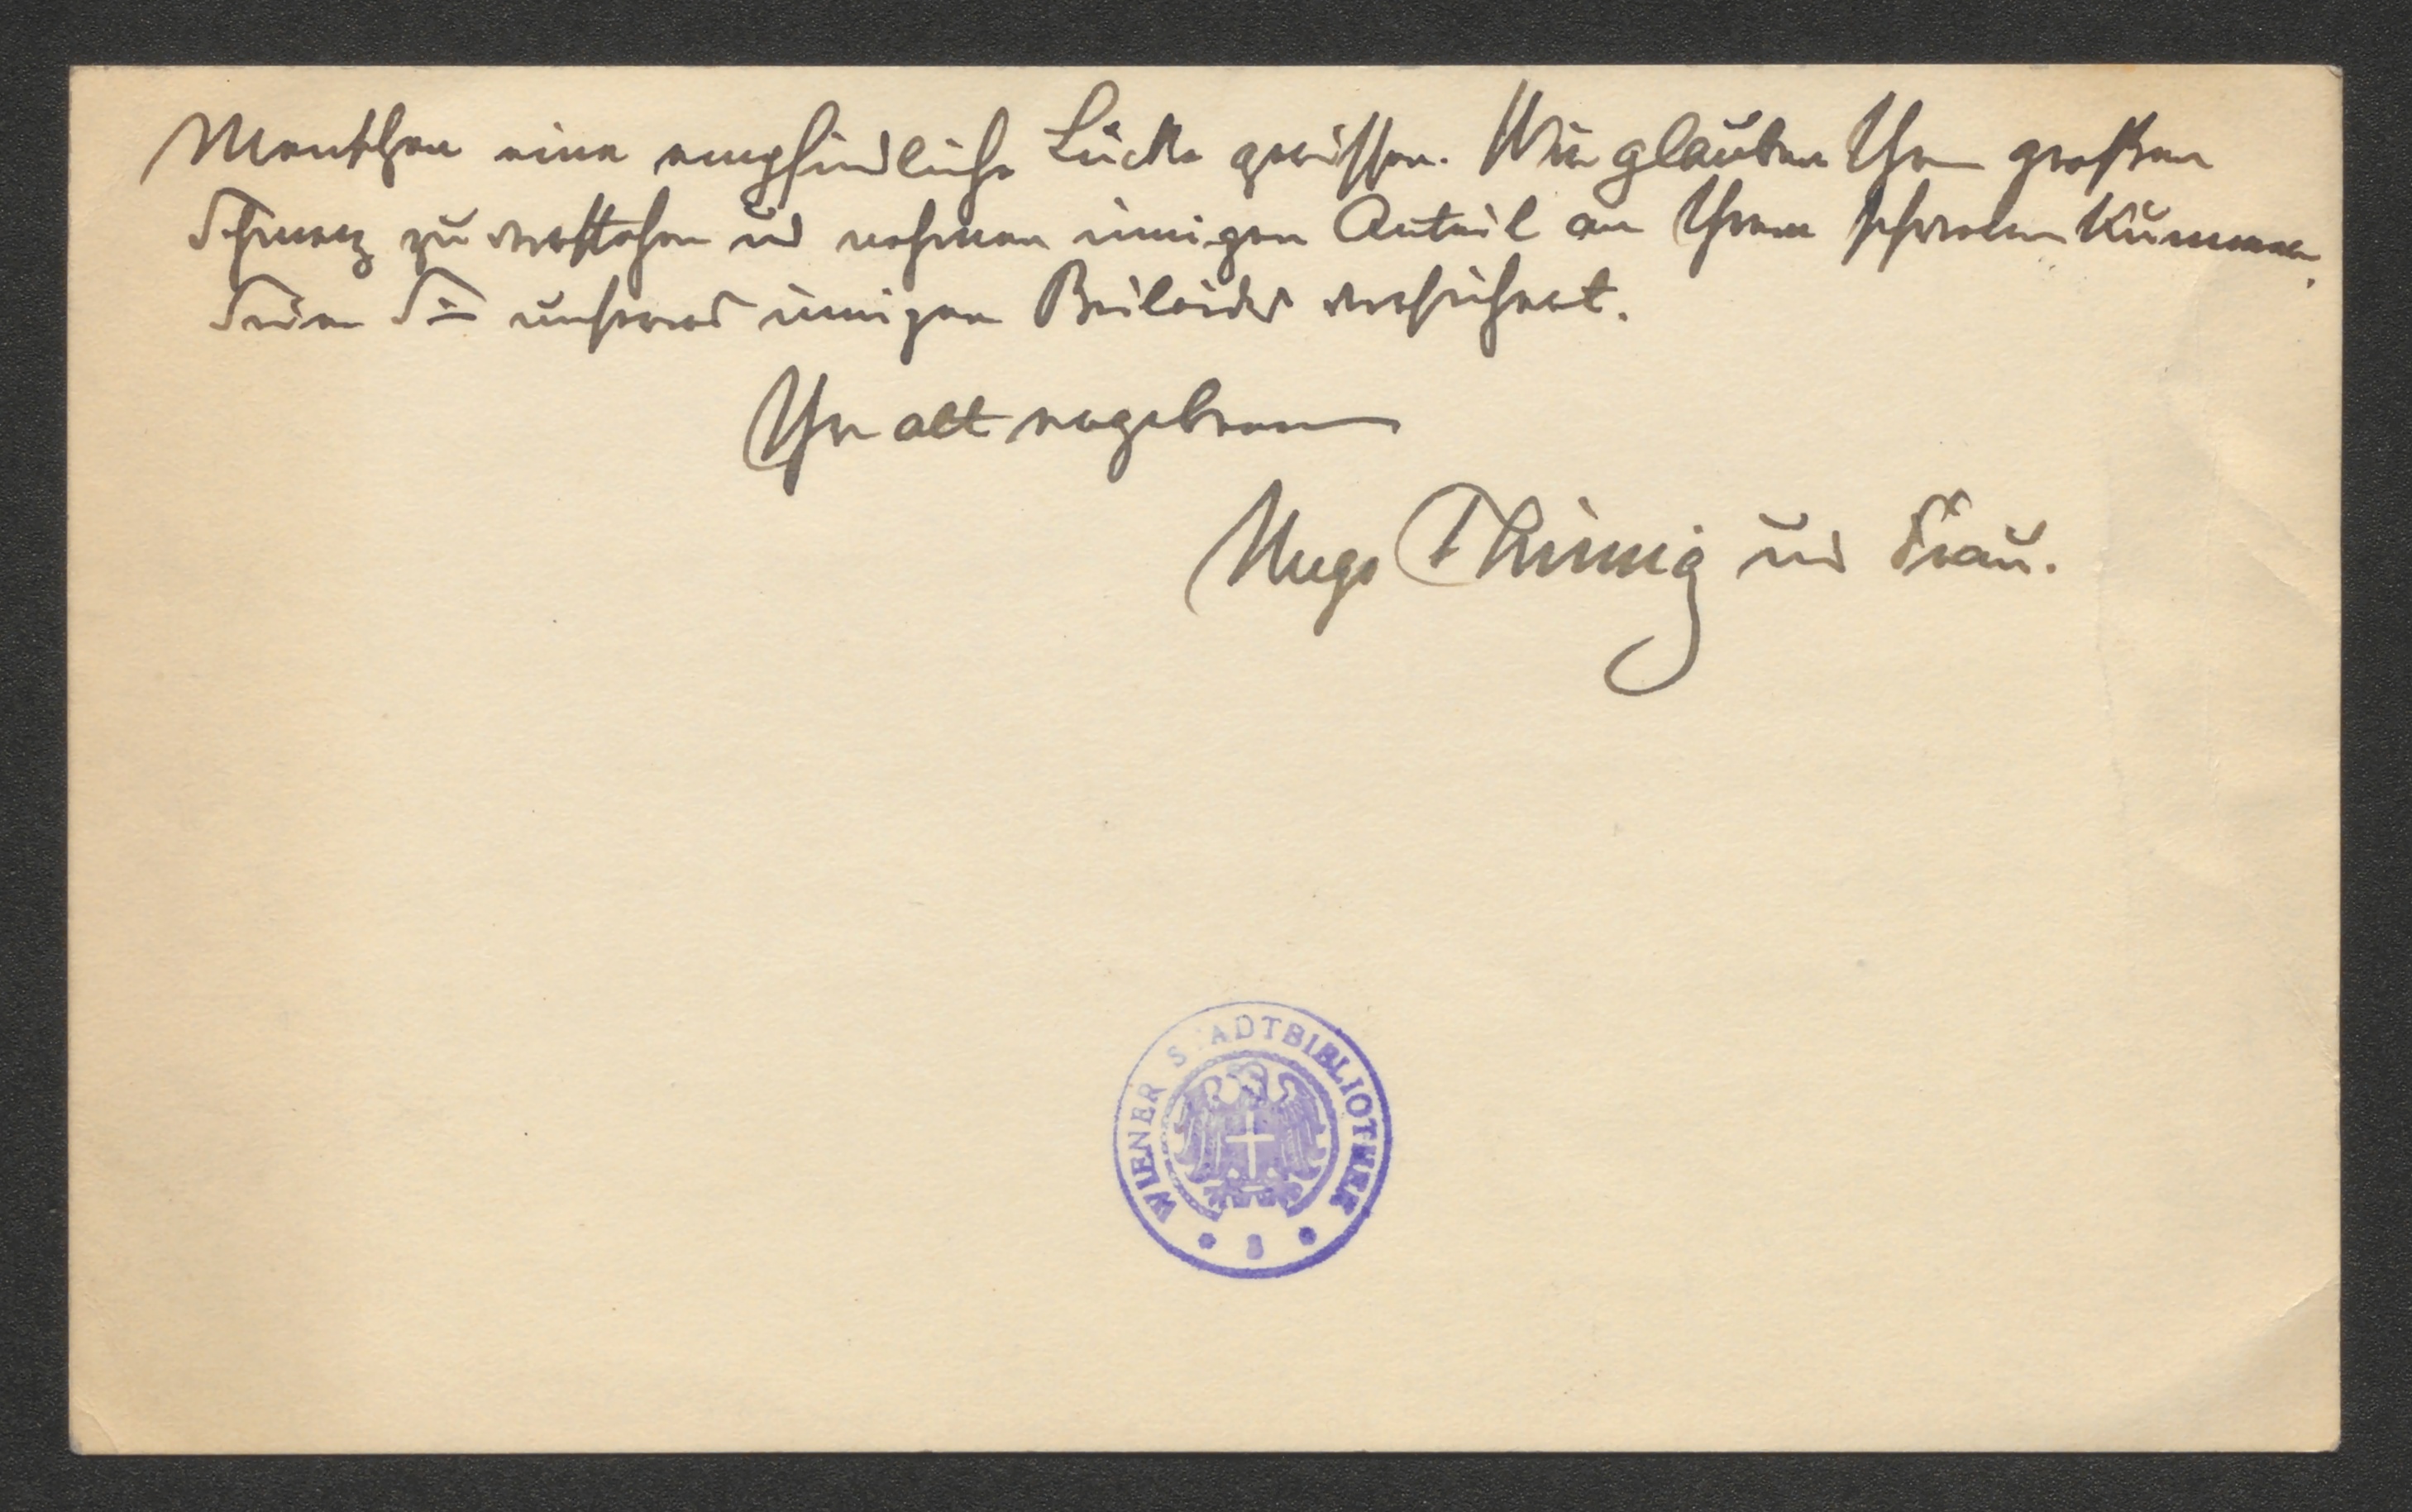 Menschen eine empfindliche Lücke gerissen. Wir glauben Ihren großen
Schmerz zu verstehen und nehmen innigen Anteil an Ihrem schweren Kummer.
Seien Sie unseres innigen Beileides versichert.
Ihr alt ergebener
Hugo Thimig und Frau.
WIENER STADTBIBLIOTHEK